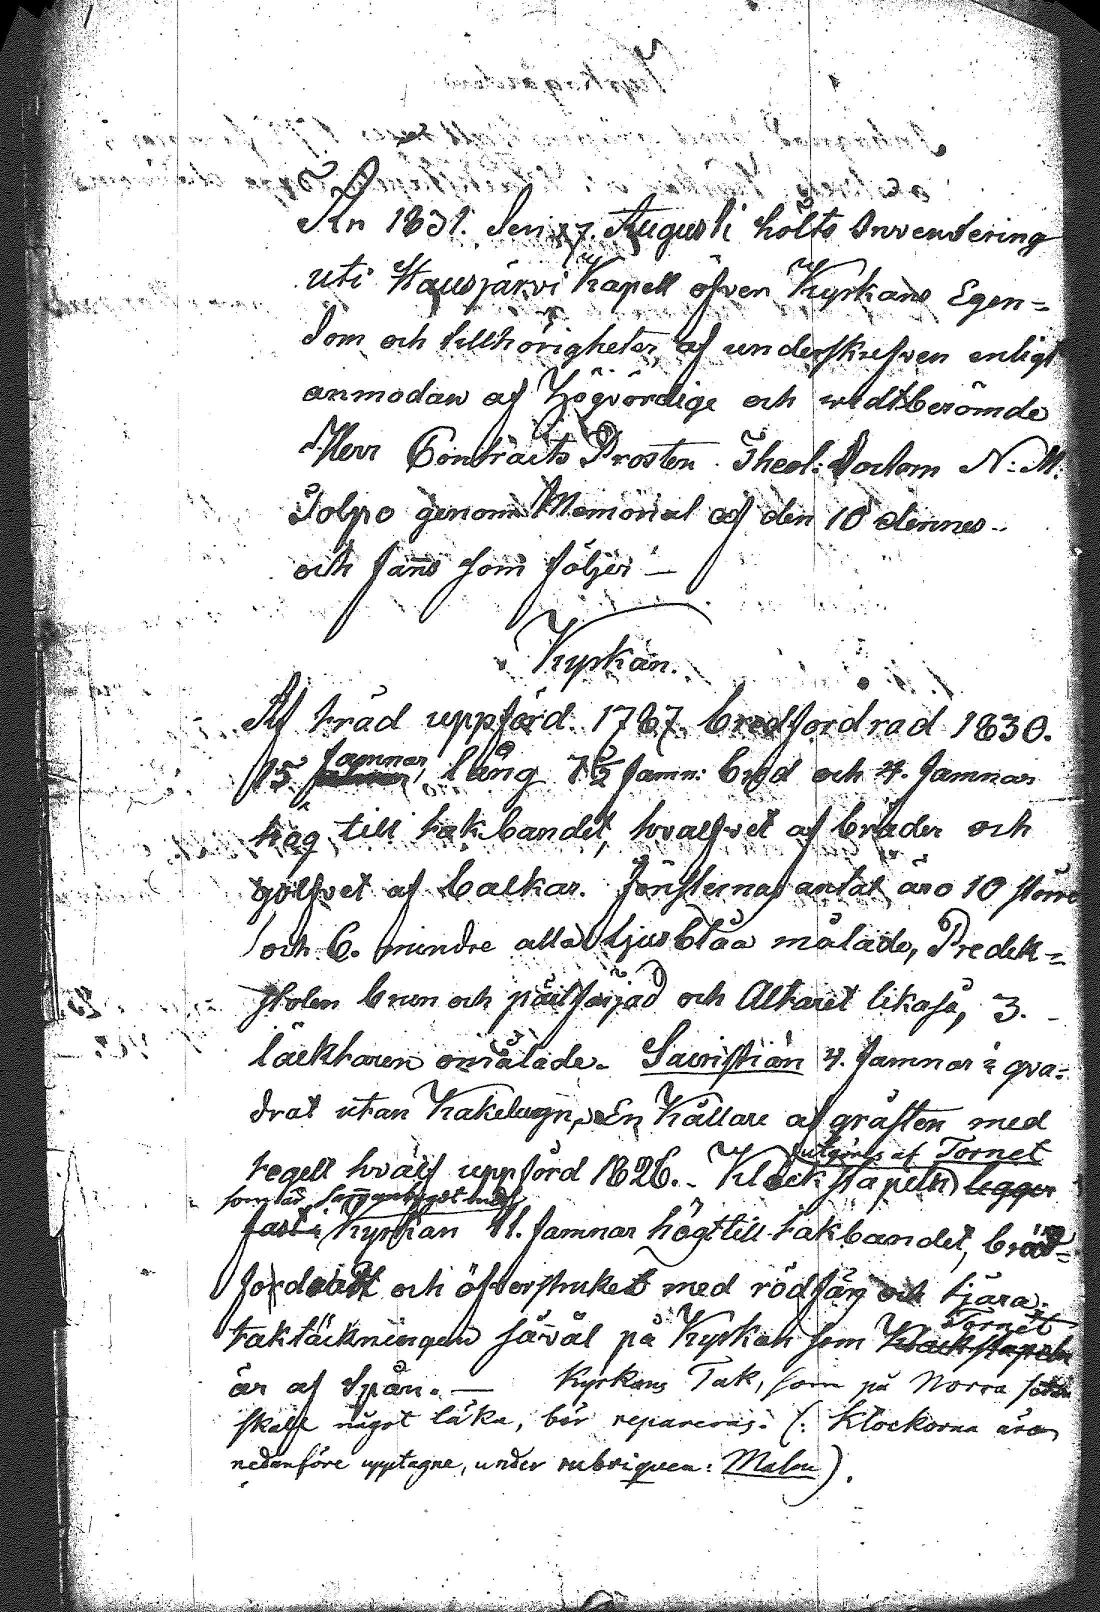 År 1831. den 17. Augusti hölts Inventering
uti Hausjärvi Kapell öfver Kyrkans Egen=
dom och tillhörigheter, af underskrefven enligt
anmodan af Högvördige och vidtberömde
Herr Contracts Prosten Theol: Doctorn N: M.
Tolpo genom Memorial af den 10 dennes..
och fanns som följer —
Kyrkan.
Af träd uppförd 1787. brädfordrad 1830.
15 famnar, lång 7½ famn: bred och 4. famnar
hög till takbandet, hvalfvet af bräder och
golfvet af balkar. Fönsternas antal äro 10 större
och 6. mindre alla ljusblåa målade, Predik=
stolen brun och pärlfärjad och Altaret likaså, 3.
läcktaren omålade. Sacristian 4. famnar i qva=
drat utan Kakelugn, En Källare af gråsten med
utgöres af Tornet
tegell hvälf uppförd 1826.. Klockstapeln ligger
som står sammanbygdt med
fast i Kyrkan 11. famnar högt till takbandet, bräd=
fordradt och öfverstruket med rödfärg och tjära.
Tornet
Taktäckningen såväl på Kyrkan som Klockstapeln
är af Spån. — Kyrkans Tak, som på Norra sidan
skall något läka, bör repareras. (: Klockorna äro
nedanföre upptagne, under rubriquen: Malm).